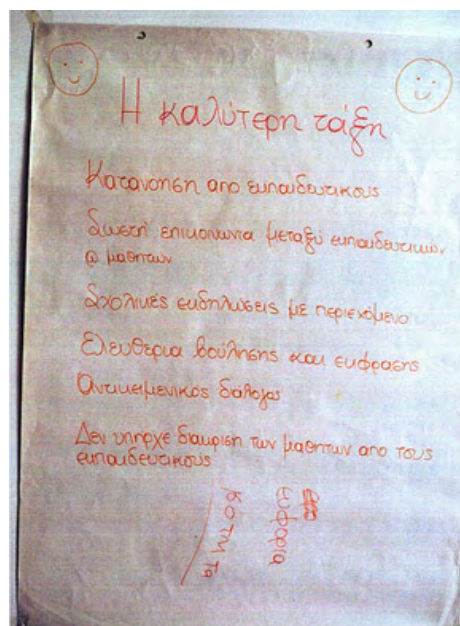 Η καλύτερη τάξη
Κατανοηση απο εκπαιδευτικους
Σωστή επικοινωνια μεταξύ εκπαιδευτικων
@ μαθητων
Σχολικές εκδηλώσεις με περιεχόμενο
Ελευθερια βούλησης και εκφρασης
Αντικειμενικός διάλογος
Δεν υπηρχε διακριση των μαθητων απο τους
εκπαιδευτικους